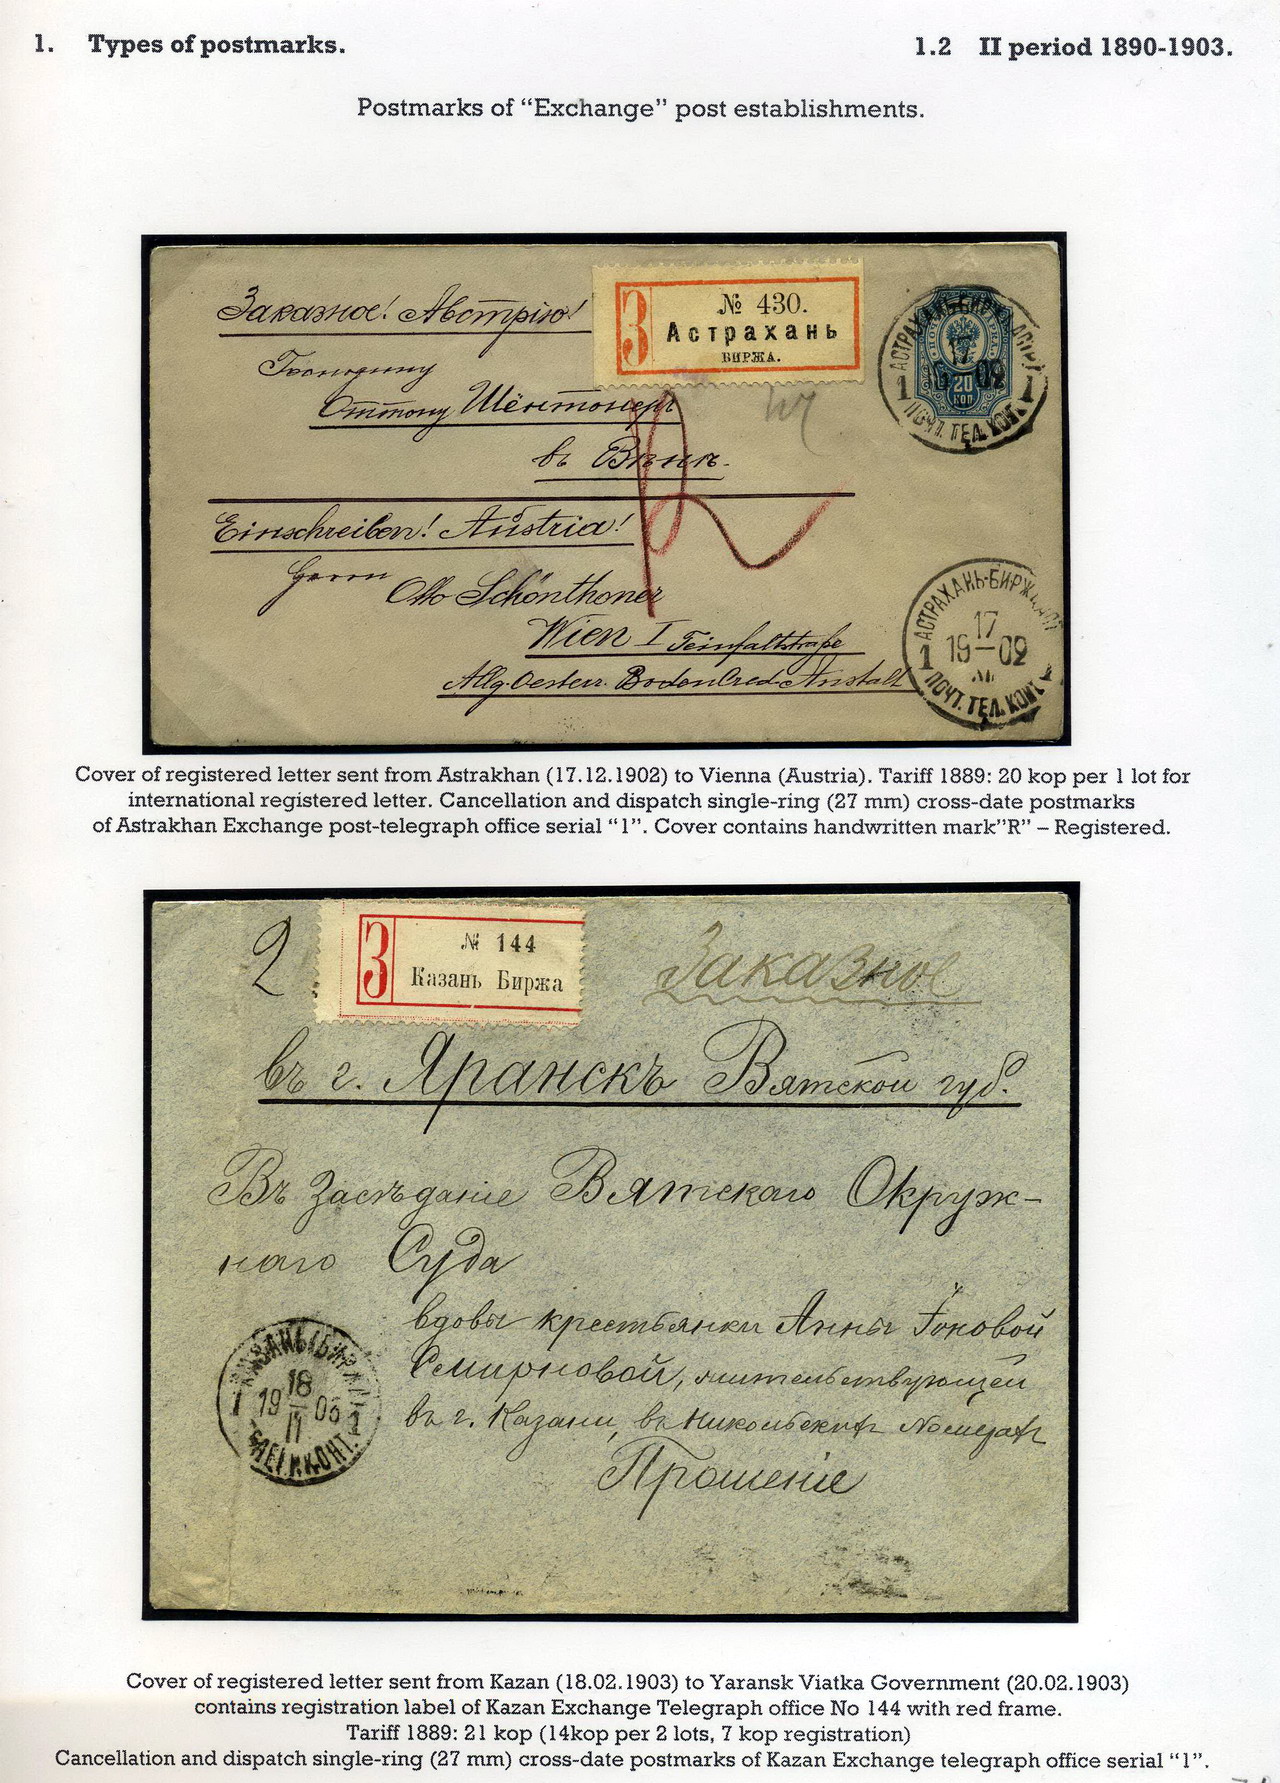 1. Types of postmarks.
1.2 II period 1890-1903.
Postmarks of “Exchange” post establishments.
Заказное! Австрію!
Господину
Оттону Шёнтонеръ
въ Вѣнѣ.
Einschreiben! Austria!
Herrn
Otto Schönthoner
Wien I Teinfaltstraße
Allg. Oesterr. Boden Cred. Anstalt
З
№ 430.
Астрахань
БИРЖА.
R
20
КОП
АСТРАХАНЬ-БИРЖ
17
02
1 1
ПОЧТ. ТЕЛ. КОНТ.
АСТРАХАНЬ-БИРЖ
17
1 19—02
XII
ПОЧТ. ТЕЛ. КОНТ.
Cover of registered letter sent from Astrakhan (17.12.1902) to Vienna (Austria). Tariff 1889: 20 kop per 1 lot for
international registered letter. Cancellation and dispatch single-ring (27 mm) cross-date postmarks
of Astrakhan Exchange post-telegraph office serial “1”. Cover contains handwritten mark”R” – Registered.
2
З
№ 144
Казань Биржа
Заказное
въ г. Яранскъ Вятской губ.
Въ Засѣданіе Вятскаго Окруж-
наго Суда
вдовы крестьянки Анны
Смирновой, жительствующей
въ г. Казани, въ Никольскихъ Номерахъ
Прошеніе
КАЗАНЬ БИРЖ
18
1 19 03 1
II
ТЕЛЕГ. КОНТ.
Cover of registered letter sent from Kazan (18.02.1903) to Yaransk Viatka Government (20.02.1903)
contains registration label of Kazan Exchange Telegraph office No 144 with red frame.
Tariff 1889: 21 kop (14kop per 2 lots, 7 kop registration)
Cancellation and dispatch single-ring (27 mm) cross-date postmarks of Kazan Exchange telegraph office serial “1”.